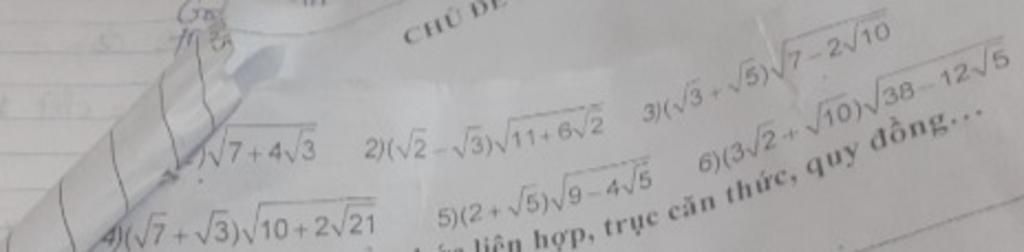 CHỦ ĐỀ
)√(7+4√3) 2)(√2-√3)√(11+6√2) 3)(√3+√5)√(7-2√10)
4)(√7+√3)√(10+2√21) 5)(2+√5)√(9-4√5) 6)(3√2+√10)√(38-12√5)
liên hợp, trục căn thức, quy đồng...